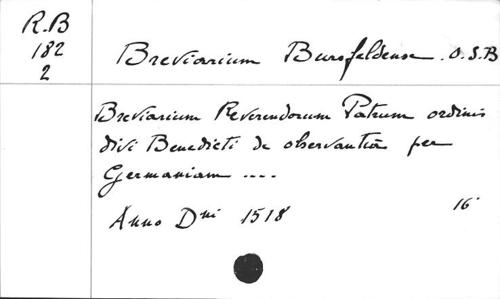 R.B
182
2
Breviarium Bursfeldense. O.S.B
Breviarium Reverendorum Patrum ordinis
divi Benedicti de observantia per
Germaniam ....
Anno Dni 1518 16°